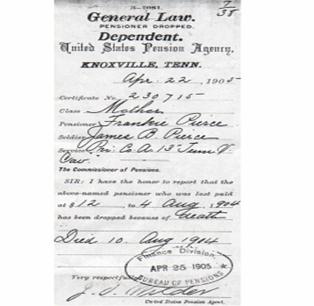 3—1081.
7/38
General Law.
PENSIONER DROPPED.
Dependent.
United States Pension Agency,
KNOXVILLE, TENN.
Apr. 22, 1905
Certificate No. 230715
Class Mother
Pensioner Frankie Pierce
Soldier James B. Pierce
Service Pri. Co. A 13 Tenn V
Cav
The Commissioner of Pensions.
SIR: I have the honor to report that the
above-named pensioner who was last paid
at $12 to 4 Aug, 1904
has been dropped because of Death
Died 10. Aug 1904
Finance Division,
APR 25 1905
BUREAU OF PENSIONS
Very respectfully,
United States Pension Agent.